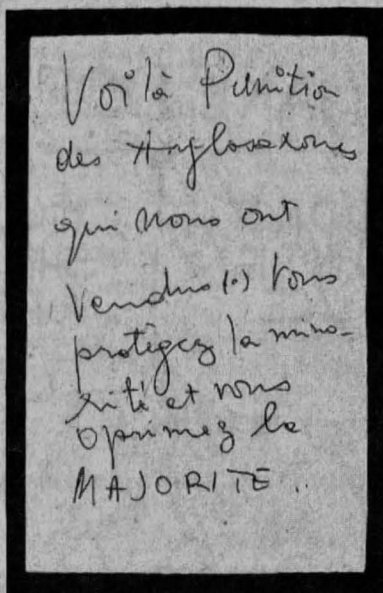 Voilà Punition
des Anglosaxones
qui nous ont
Vendus (.) Vous
protégez la mino-
rité et vous
oprimez la
MAJORITE..